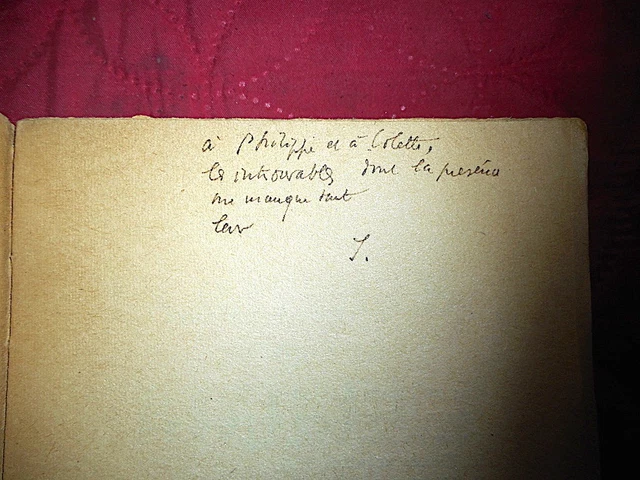 à Philippe et à Colette,
les introuvables dont la présence
me manque tant
leur
J.